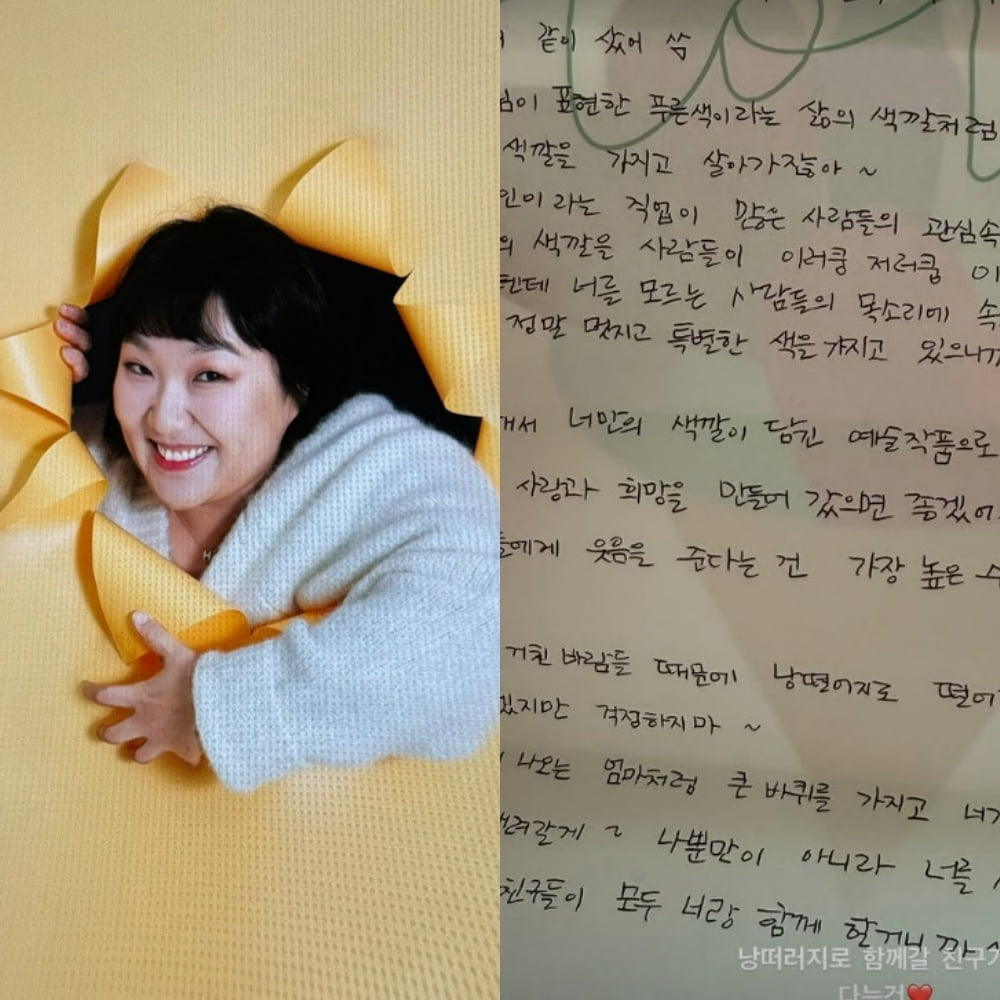 같이 샀어 쌈
표현한 푸른색이라는 삶의 색깔처럼
색깔을 가지고 살아가잖아 ~
라는 직업이 많은 사람들의 관심속
색깔을 사람들이 이러쿵 저러쿵
너를 모르는 사람들의 목소리에 속
정말 멋지고 특별한 색을 가지고 있으니까
너만의 색깔이 담긴 예술작품으로
사랑과 희망을 만들어 갔으면 좋겠어
웃음을 준다는 건 가장 높은
거친 바람들 때문에 낭떨어지로 떨어
걱정하지마 ~
나오는 엄마처럼 큰 바퀴를 가지고
나뿐만이 아니라 너를
친구들이 모두 너랑 함께 할거니까
낭떠러지로 함께갈 친구가
다는건❤️